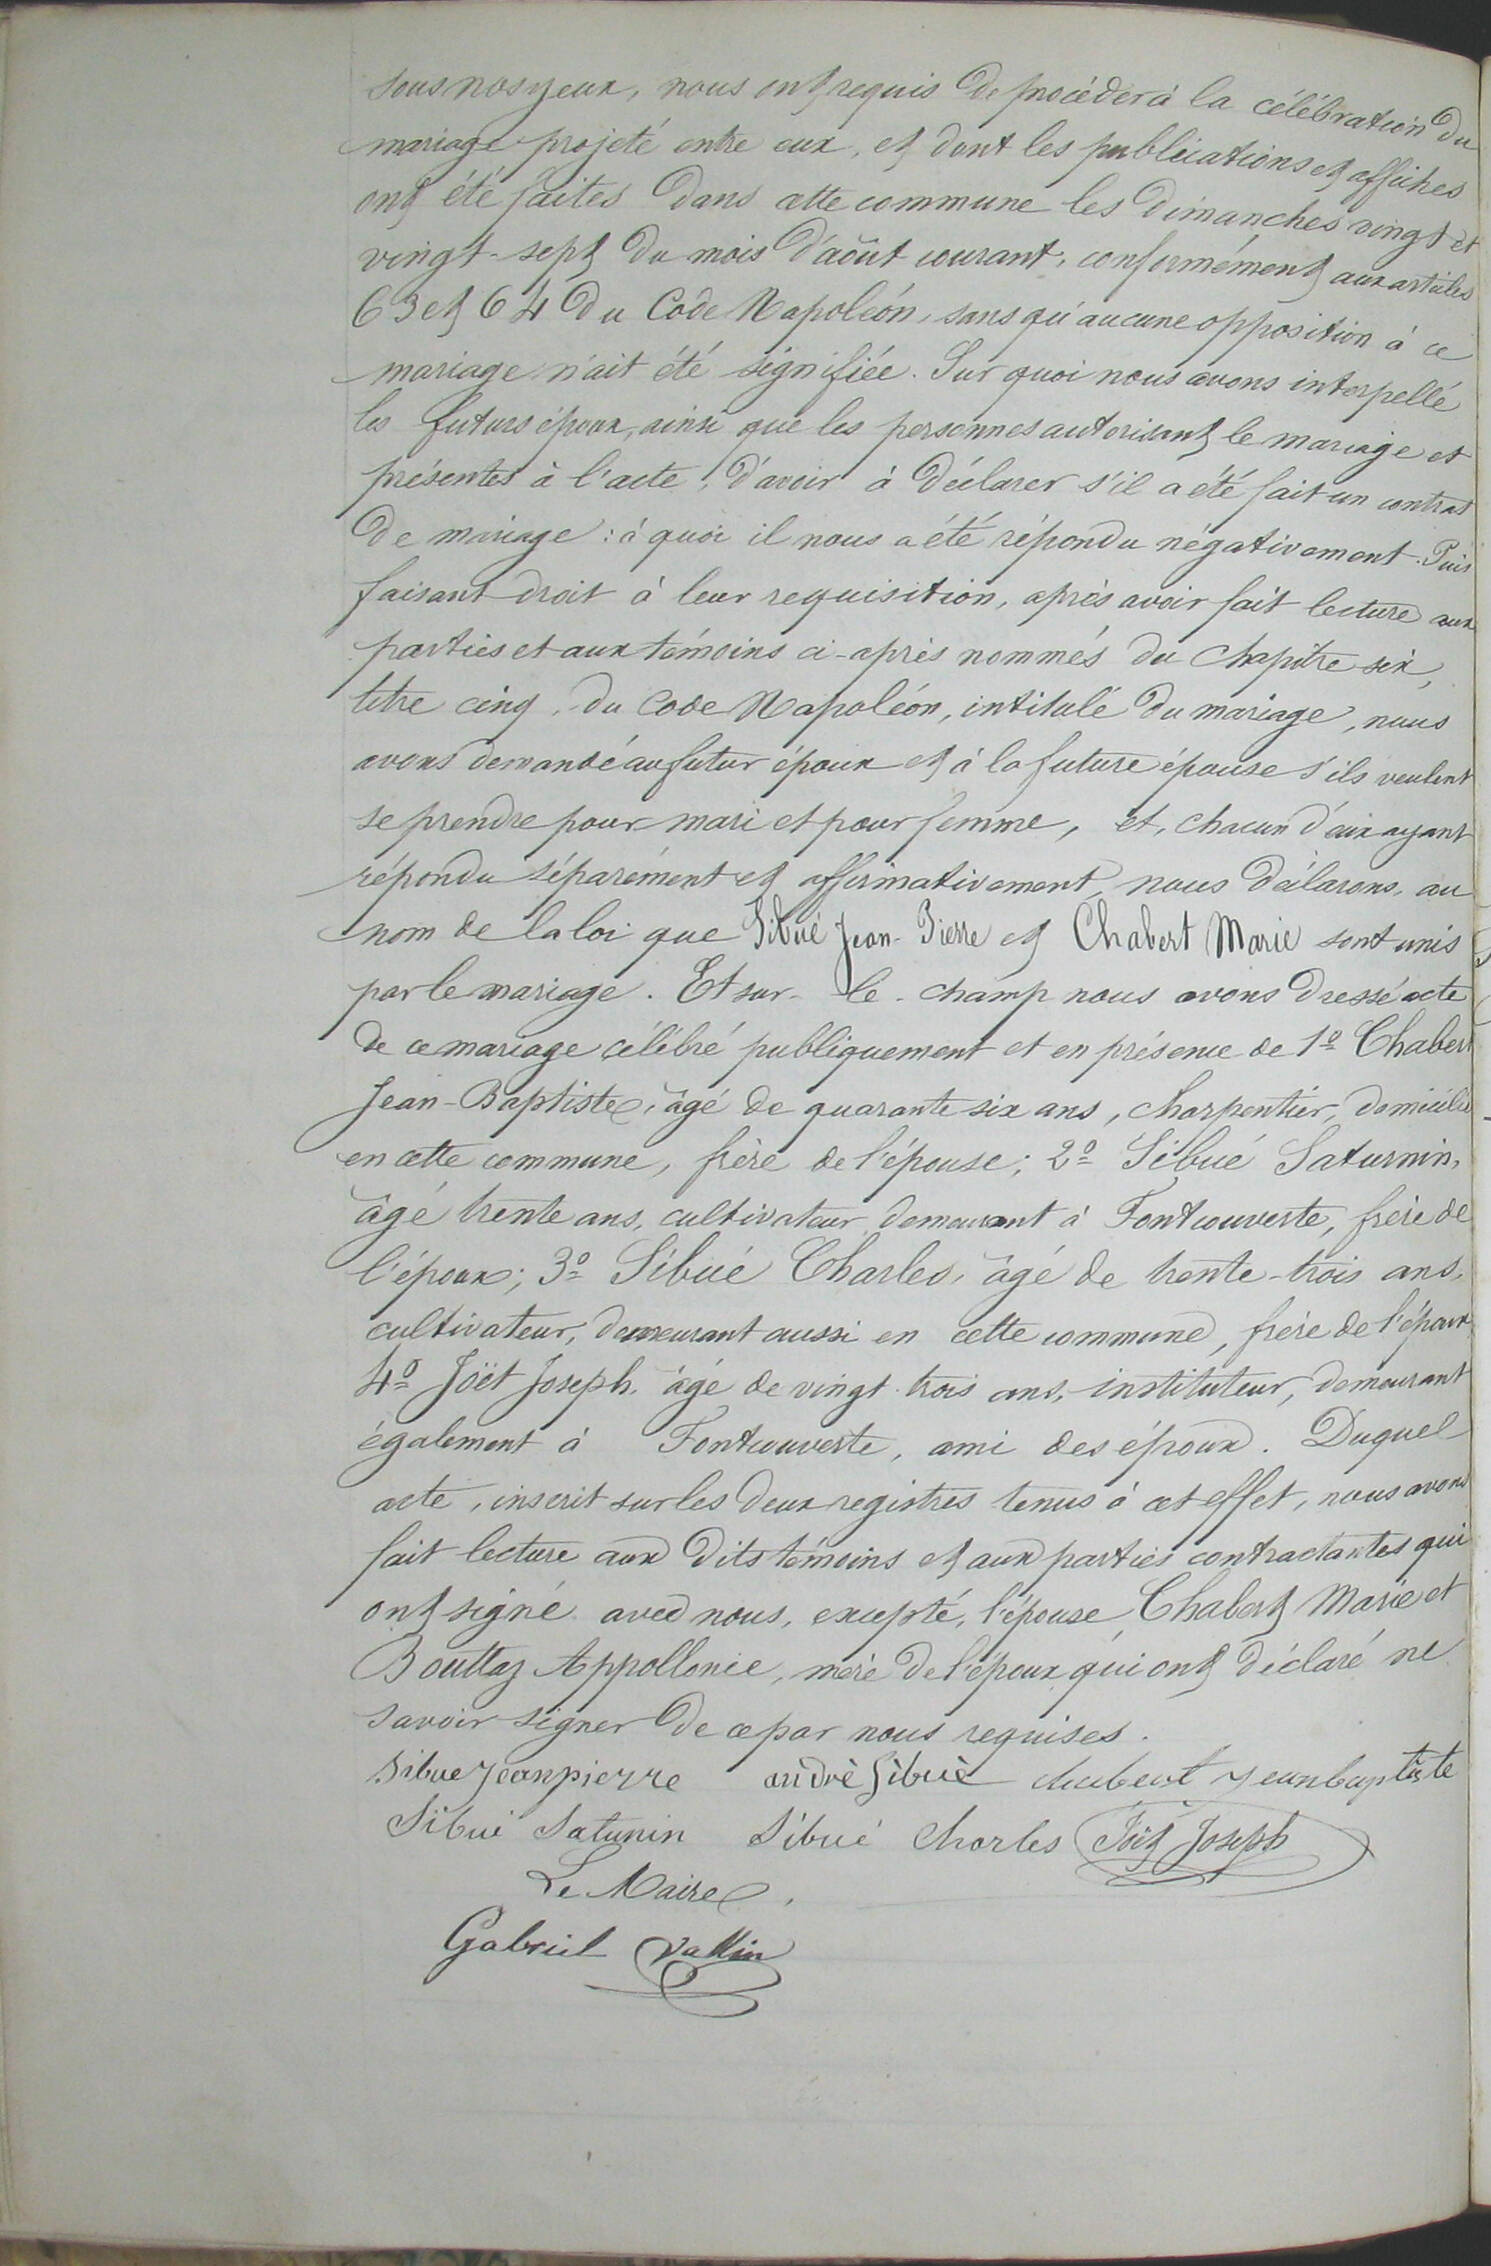 sous nos yeux, nous ont requis de procéder à la célébration du
mariage projeté entre eux, et dont les publications et affiches
ont été faites dans cette commune les dimanches vingt et
vingt-sept du mois d'août courant, conformément aux articles
63 et 64 du Code Napoléon, sans qu'aucune opposition à ce
mariage n'ait été signifiée. Sur quoi nous avons interpellé
les futurs époux, ainsi que les personnes autorisant le mariage et
présentes à l'acte, d'avoir à déclarer s'il a été fait un contrat
de mariage : à quoi il nous a été répondu négativement. Puis
faisant droit à leur requisition, après avoir fait lecture aux
parties et aux témoins ci-après nommés du chapitre six,
titre cinq, du Code Napoléon, intitulé du mariage, nous
avons demandé au futur époux et à la future épouse s'ils veulent
se prendre pour mari et pour femme, et, chacun d'eux ayant
répondu séparément et affirmativement, nous déclarons, au
nom de la loi que Sibué Jean-Pierre et Chabert Marie sont unis
par le mariage. Et sur-le-champ nous avons dressé acte
de ce mariage célébré publiquement et en présence de 1º Chabert
Jean-Baptiste, âgé de quarante six ans, charpentier, domicilié
en cette commune, frère de l'épouse; 2º Sibué Saturnin,
âgé trente ans, cultivateur demeurant à Fontcouverte, frère de
l'époux; 3º Sibué Charles, âgé de trente-trois ans,
cultivateur, demeurant aussi en cette commune, frère de l'époux
4º Joët Joseph, âgé de vingt-trois ans, instituteur, demeurant
également à Fontcouverte, ami des époux. Duquel
acte, inscrit sur les deux registres tenus à cet effet, nous avons
fait lecture aux dits témoins et aux parties contractantes qui
ont signé avec nous, excepté, l'épouse Chabert Marie et
Bouttaz Appollonie, mère de l'époux qui ont déclaré ne
savoir signer de ce par nous requises.
Sibue jeanpierre andrè Sibuè chabert jeanbaptiste
Sibué Satunin Sibué Charles Joët Joseph
Le Maire,
Gabriel Vallin